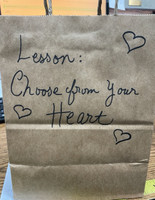 Lesson:
Choose from Your
Heart